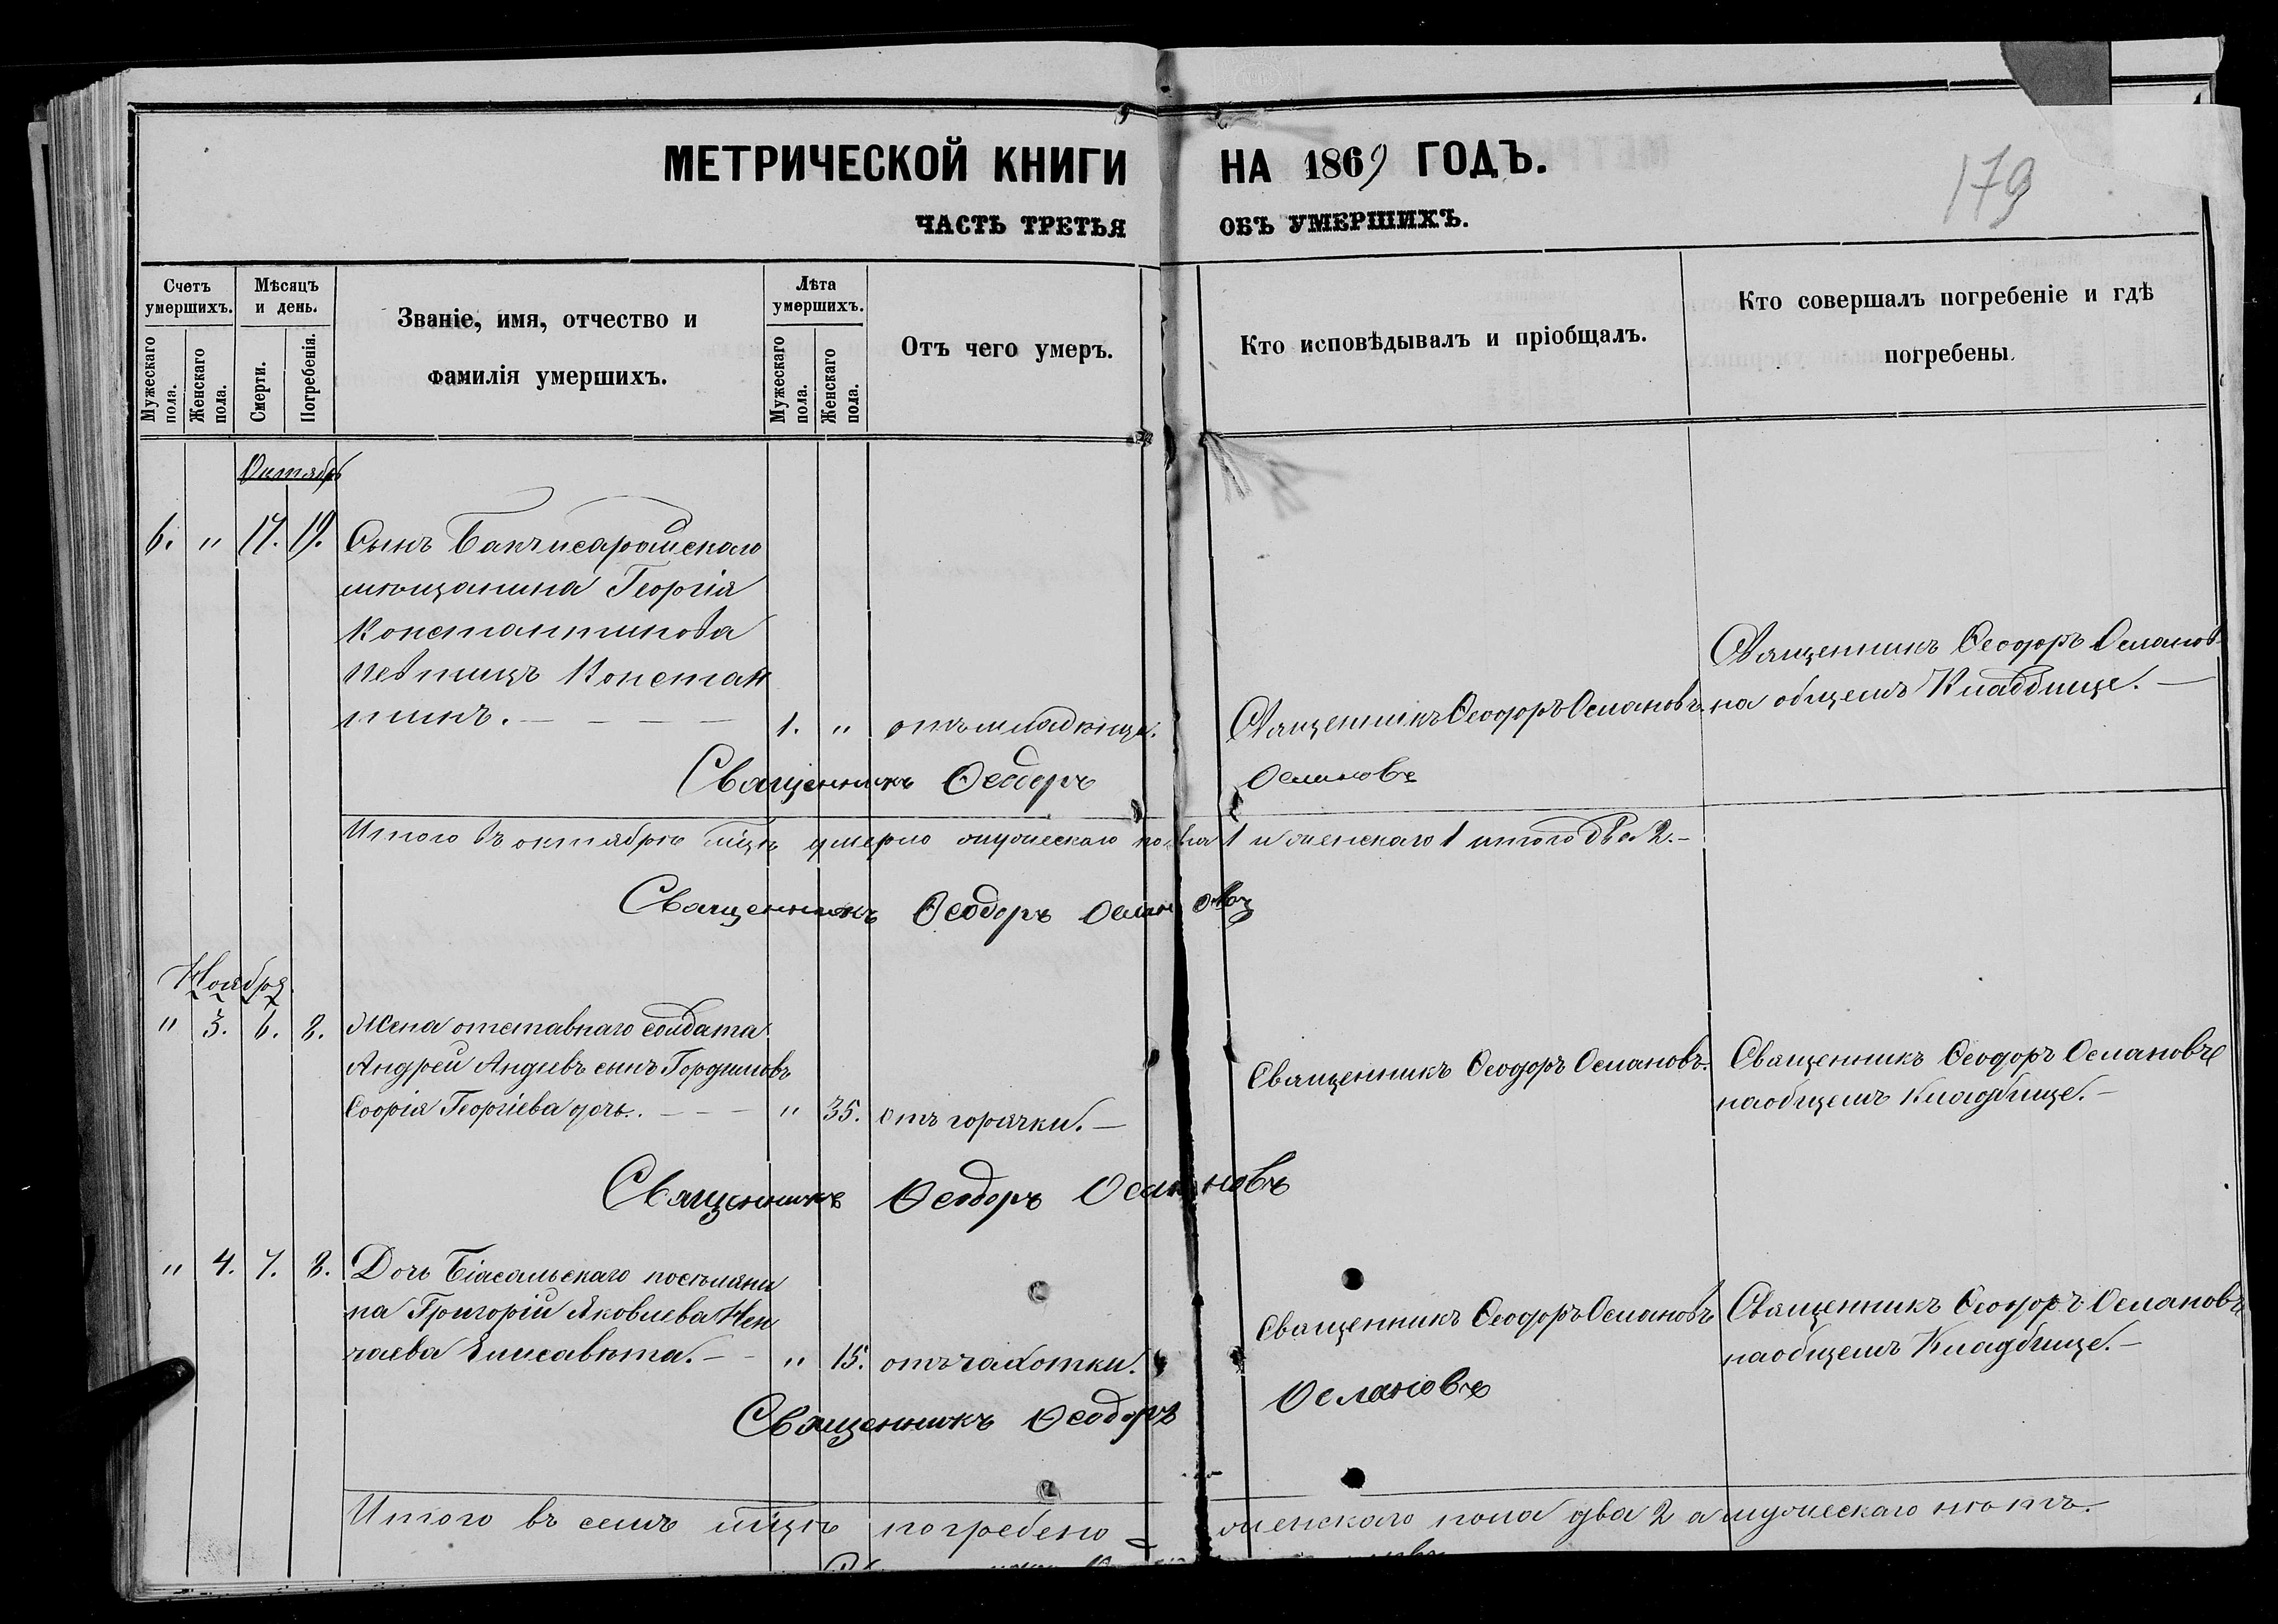 179
МЕТРИЧЕСКОЙ КНИГИ НА 1869 ГОДЪ.
ЧАСТЬ ТРЕТЬЯ ОБЪ УМЕРШИХЪ.
Счетъ умершихъ.
Мужескаго пола.
Женскаго пола.
Мѣсяцъ и день.
Смерти.
Погребенія.
Званіе, имя, отчество и
фамилія умершихъ.
Лѣта умершихъ.
Мужескаго пола.
Женскаго пола.
Отъ чего умеръ.
Кто исповѣдывалъ и пріобщалъ.
Кто совершалъ погребеніе и гдѣ
погребены.
Октябрь
6. " 17. 19. Сынъ Бакчисарайскаго
мѣщанина Георгія
Константинова
Константинъ. — — — — 1. "
Священникъ Ѳеодоръ Османовъ
Священникъ Ѳеодоръ Османовъ
на общемъ Кладбище. —
Священникъ Ѳеодоръ Османовъ
Итого въ октябрѣ мцѣ умерло мужескаго пола 1 и женскаго 1 итого два 2. —
Священникъ Ѳеодоръ Османовъ
Ноября
" 3. 6. 8. Жена отставнаго солдата
Андрей Андеевъ сынъ
Софія Георгіева дочь. — — — " 35. отъ горячки. —
Священникъ Ѳеодоръ Османовъ.
Священникъ Ѳеодоръ Османовъ
на общемъ Кладбище. —
Священникъ Ѳеодоръ Османовъ
" 4. 7. 8. Дочь Біасальскаго поселяни
на Григорій Яковлева
Елисавѣта. — — " 15. отъ чахотки.
Священникъ Ѳеодоръ Османовъ
Священникъ Ѳеодоръ Османовъ
на общемъ Кладбище. —
Священникъ Ѳеодоръ Османовъ
Итого въ семъ мцѣ погребено женскаго пола два 2 а мужескаго нѣтъ. —